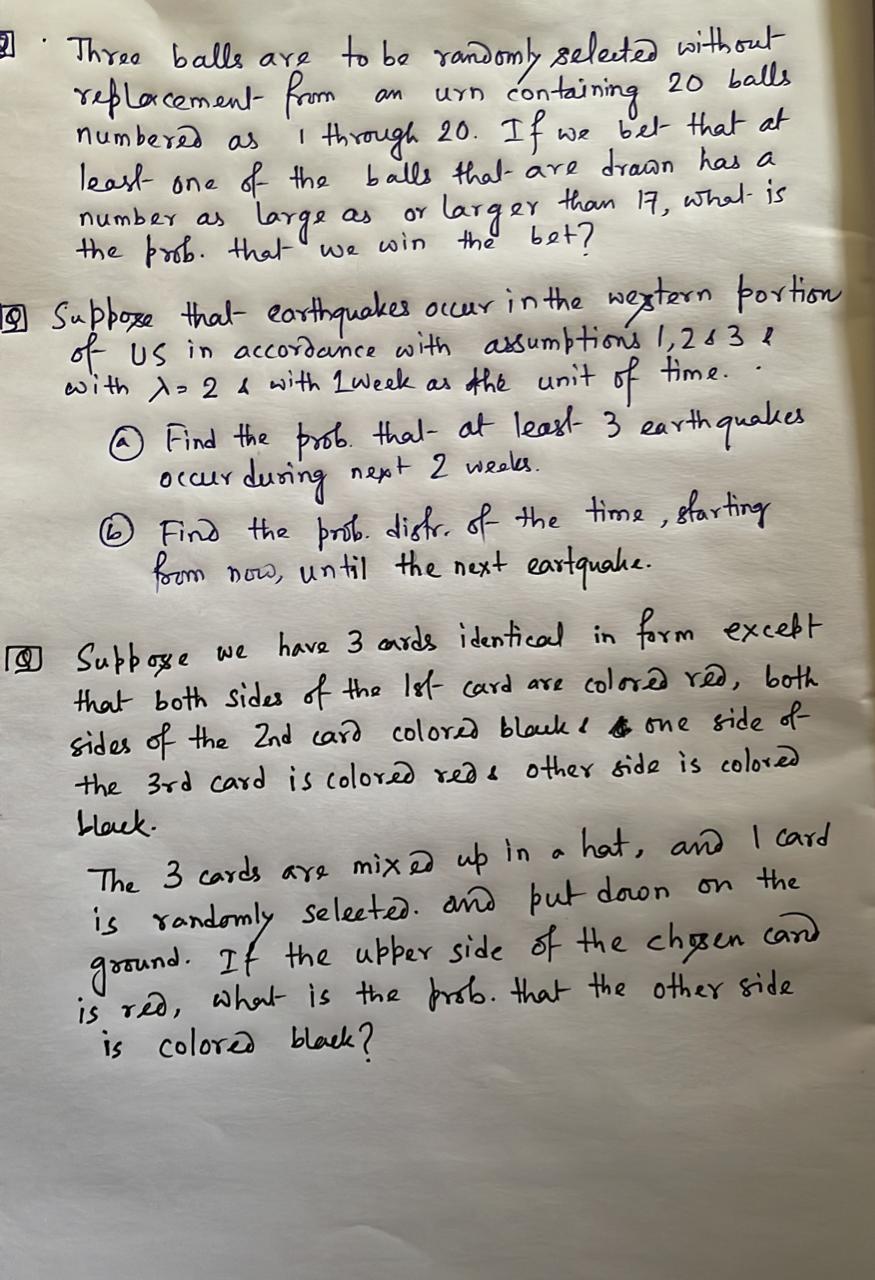 Q. Three balls are to be randomly selected without
replacement from an urn containing 20 balls
numbered as 1 through 20. If we bet that at
least one of the balls that are drawn has a
number as large as or larger than 17, what is
the prob. that we win the bet?
Q Suppose that earthquakes occur in the western portion
of US in accordance with assumptions 1, 2 & 3 &
with λ = 2 & with 1 week as the unit of time.
(a) Find the prob. that at least 3 earthquakes
occur during next 2 weeks.
(b) Find the prob. distr. of the time, starting
from now, until the next eartquake.
Q Suppose we have 3 cards identical in form except
that both sides of the 1st card are colored red, both
sides of the 2nd card colored black & one side of
the 3rd card is colored red & other side is colored
black.
The 3 cards are mixed up in a hat, and 1 card
is randomly selected. and put down on the
ground. If the upper side of the chosen card
is red, what is the prob. that the other side
is colored black?